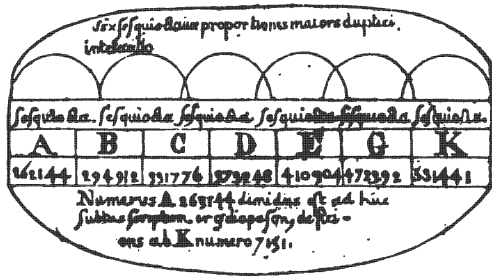 sex sesquioctauae proportiones maiors duplici.
interuallo
sesquiocta. sesquiocta sesquiocta sesquiocta sesquiocta sesquiocta.
A B C D E G K
262144 294912 331776 373248 410904 472392 531441
Numerus A 262144 dimidius est ad huc
subtus scriptum ergo diapason,
ens ab K numero 7153.